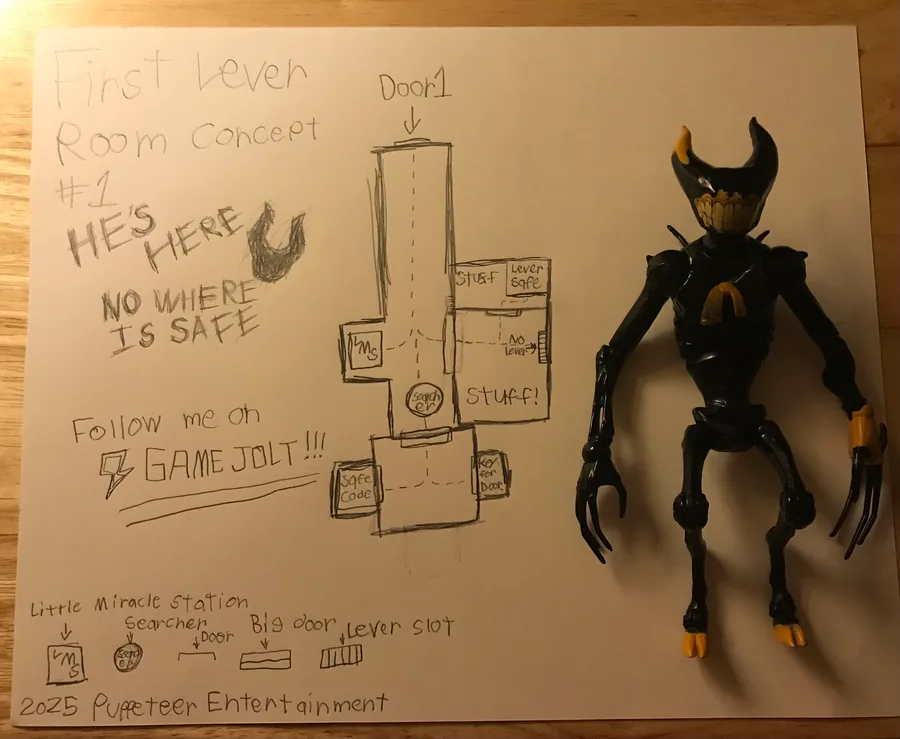 First Lever
Room Concept
#1
HE'S
HERE
NO WHERE
IS SAFE
Follow me on
GAMEJOLT!!!
Door1
STUFF
Lever
Safe
LMS
NO
Lever
STUFF!
Search
er
Safe
Code
Key
for
Door
Little Miracle Station
Searcher
Door
Big door
Lever slot
LMS
Search
er
2025 Puppeteer Entertainment